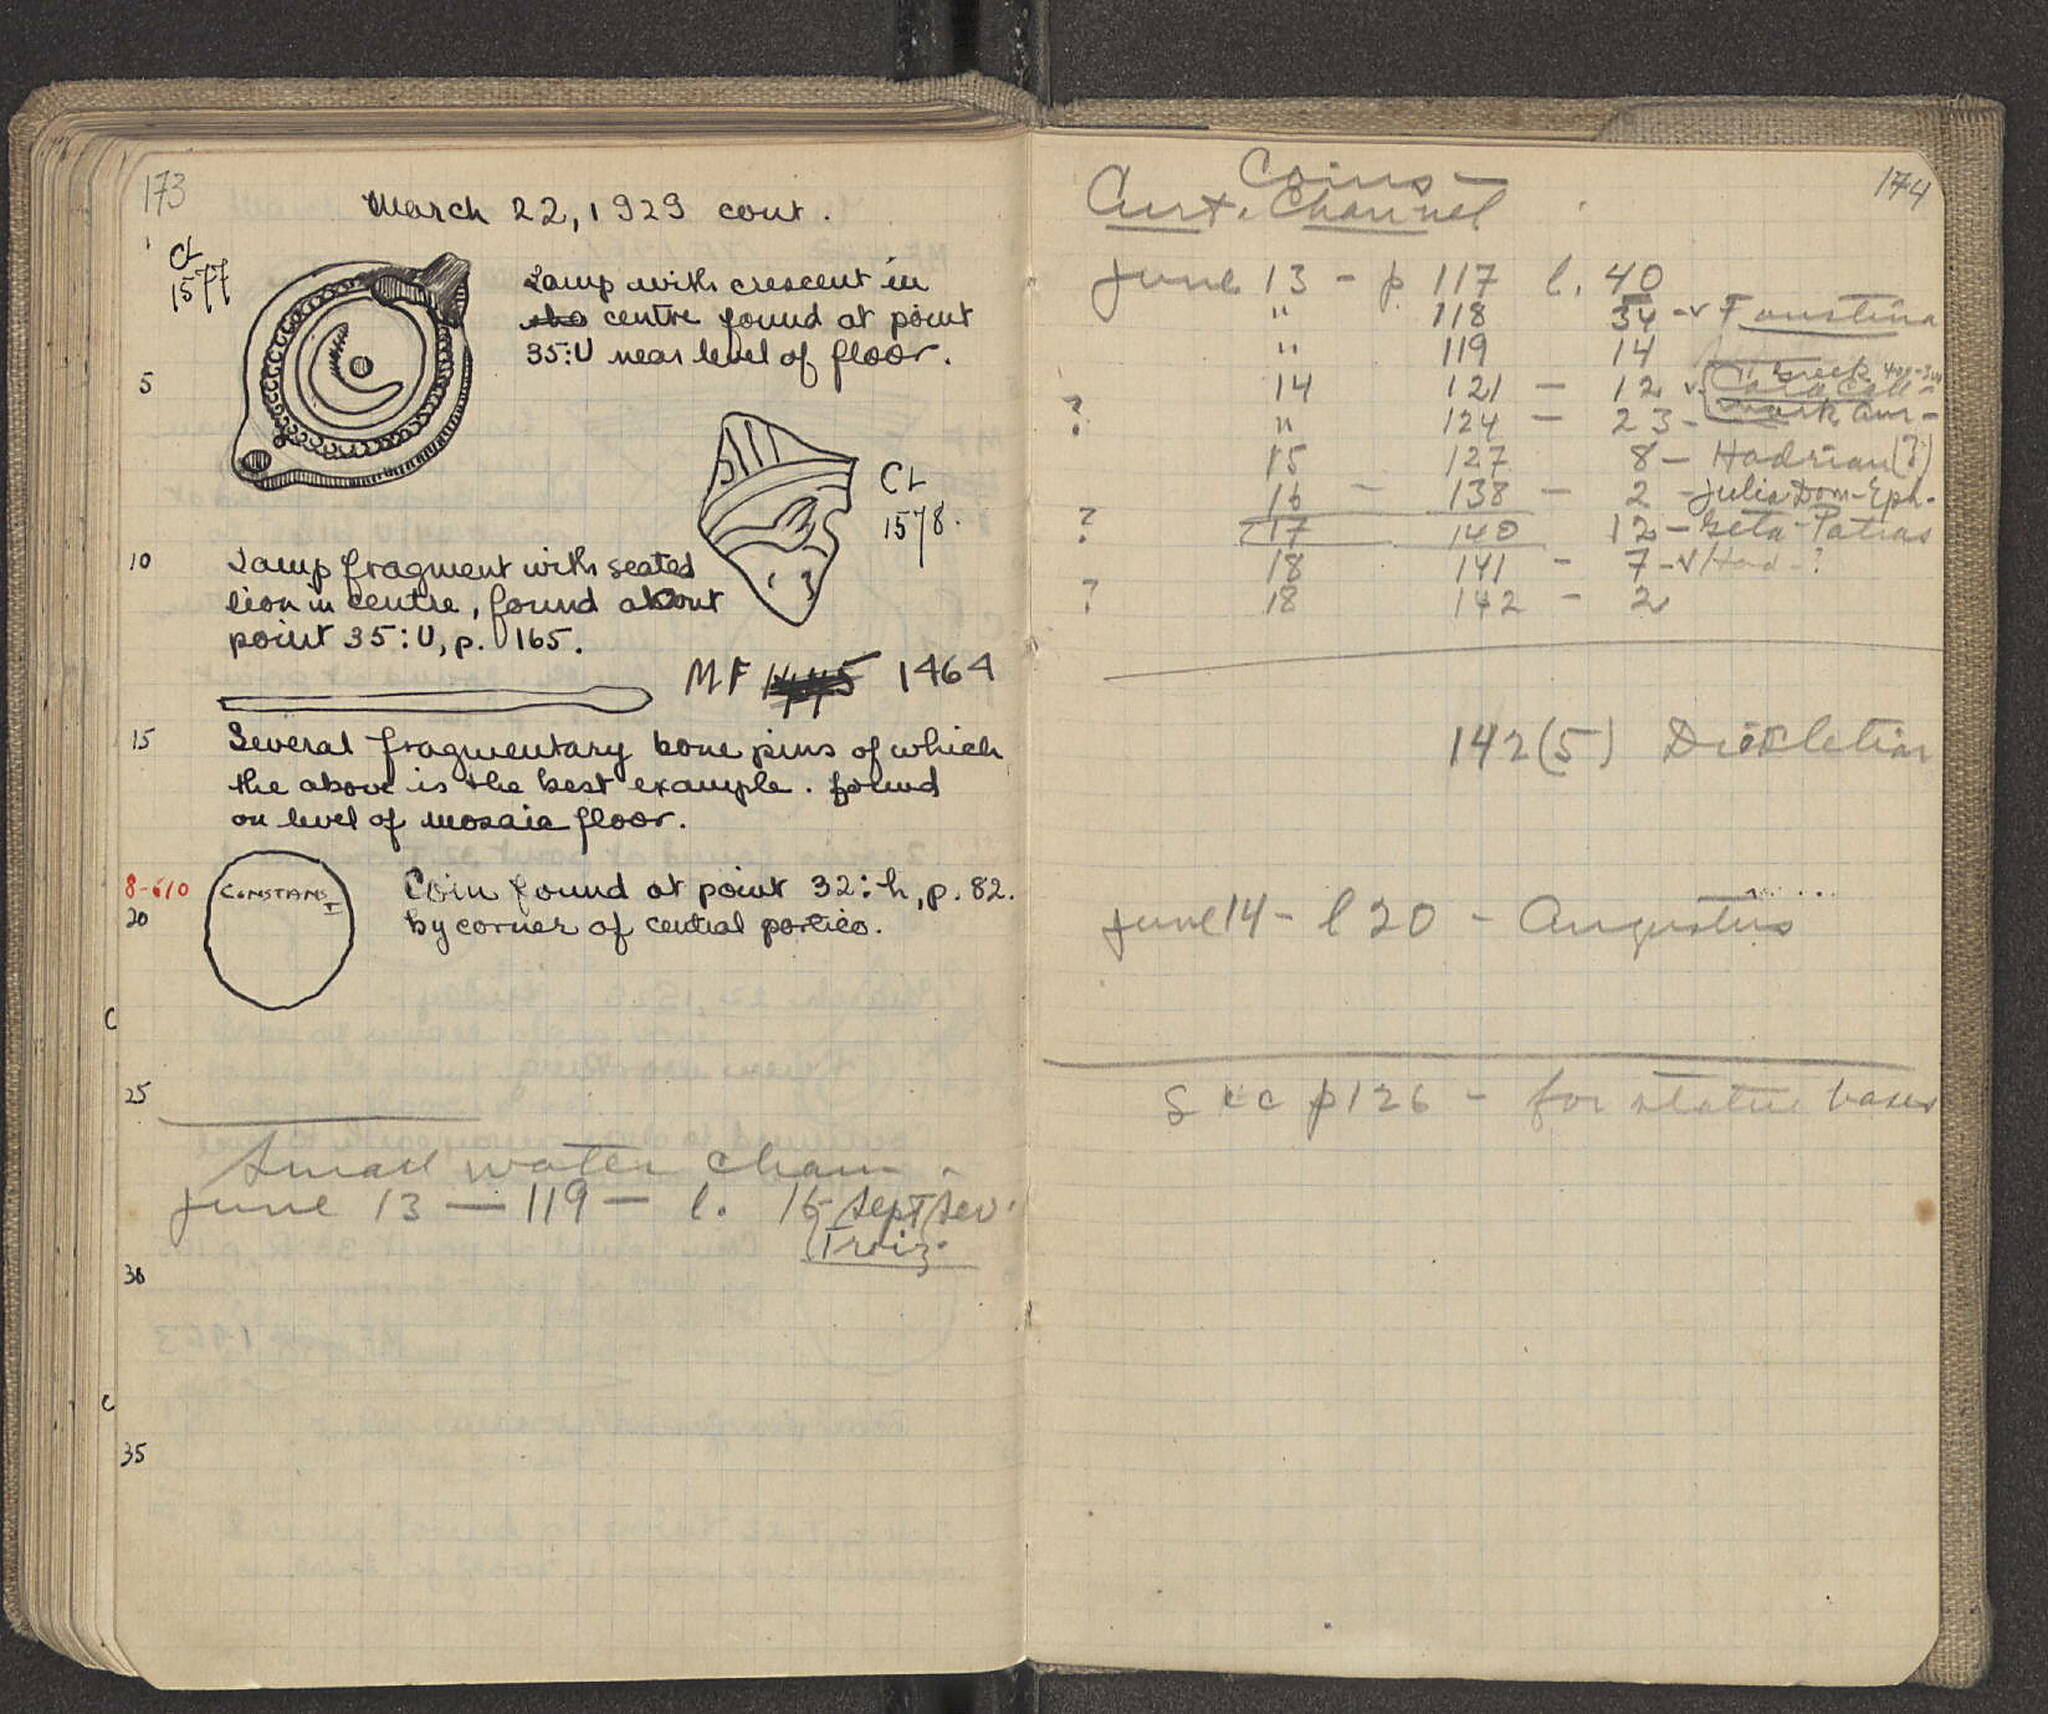 173
March 22, 1929 cont.
1
CL
1577
Lamp with crescent in
the centre found at point
35:U near level of floor.
5
CL
1578.
10
Lamp fragment with seated
lion in centre, found about
point 35:U, p. 165.
MF 1445 1464
15
Several fragmentary bone pins of which
the above is the best example. found
on level of mosaic floor.
8-610
20
CONSTANS I
Coin found at point 32:h, p. 82.
by corner of central portico.
C
25
Small water chan.
June 13 — 119 — l. 16 Sept Sev.
Troiz.
30
C
35
174
Coins —
Curt. Channel
June 13 - p 117 l. 40
" 118 34 - v Faustina
" 119 14
14 121 - 12 v Greek 400-300
? " 124 - 23 - Mark Aur -
15 127 8 - Hadrian (?)
16 - 138 - 2 - Julia Dom - Eph.
? 17 140 12 - Geta - Patras
18 141 - 7 - v Had - ?
? 18 142 - 2
142 (5) Diokletian
June 14 - l 20 - Augustus
See p 126 - for statue bases